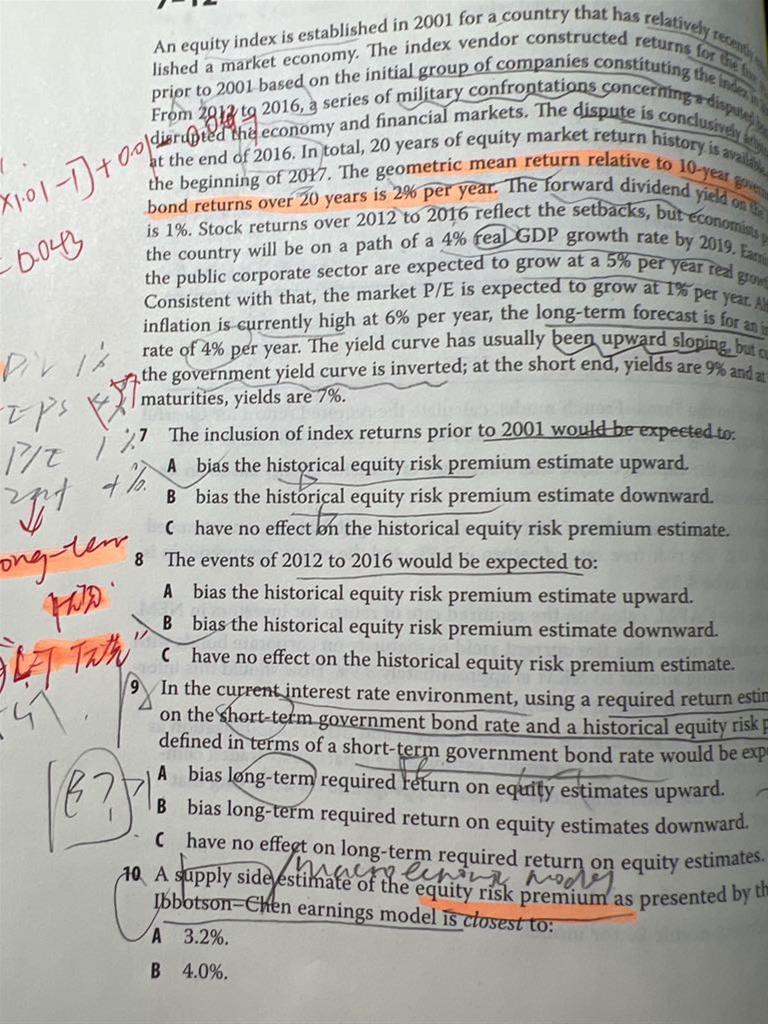 An equity index is established in 2001 for a country that has relatively recently
lished a market economy. The index vendor constructed returns for the
prior to 2001 based on the initial group of companies constituting the index in
From 2012 to 2016, a series of military confrontations concerning a disputed
disrupted the economy and financial markets. The dispute is conclusively
at the end of 2016. In total, 20 years of equity market return history is available
the beginning of 2017. The geometric mean return relative to 10-year
bond returns over 20 years is 2% per year. The forward dividend yield on the
is 1%. Stock returns over 2012 to 2016 reflect the setbacks, but economists
the country will be on a path of a 4% real GDP growth rate by 2019.
the public corporate sector are expected to grow at a 5% per year real
Consistent with that, the market P/E is expected to grow at 1% per year.
inflation is currently high at 6% per year, the long-term forecast is for an
rate of 4% per year. The yield curve has usually been upward sloping, but
the government yield curve is inverted; at the short end, yields are 9% and at
maturities, yields are 7%.
×1.01 −1] + 0.01
0.043
Div 1%
EPS
P/E 1%
4%
long-term
7 The inclusion of index returns prior to 2001 would be expected to:
A bias the historical equity risk premium estimate upward.
B bias the historical equity risk premium estimate downward.
C have no effect on the historical equity risk premium estimate.
8 The events of 2012 to 2016 would be expected to:
A bias the historical equity risk premium estimate upward.
B bias the historical equity risk premium estimate downward.
C have no effect on the historical equity risk premium estimate.
9 In the current interest rate environment, using a required return
on the short-term government bond rate and a historical equity risk
defined in terms of a short-term government bond rate would be
A bias long-term required return on equity estimates upward.
B bias long-term required return on equity estimates downward.
C have no effect on long-term required return on equity estimates.
10 A supply side estimate of the equity risk premium as presented by
Ibbotson–Chen earnings model is closest to:
A 3.2%.
B 4.0%.